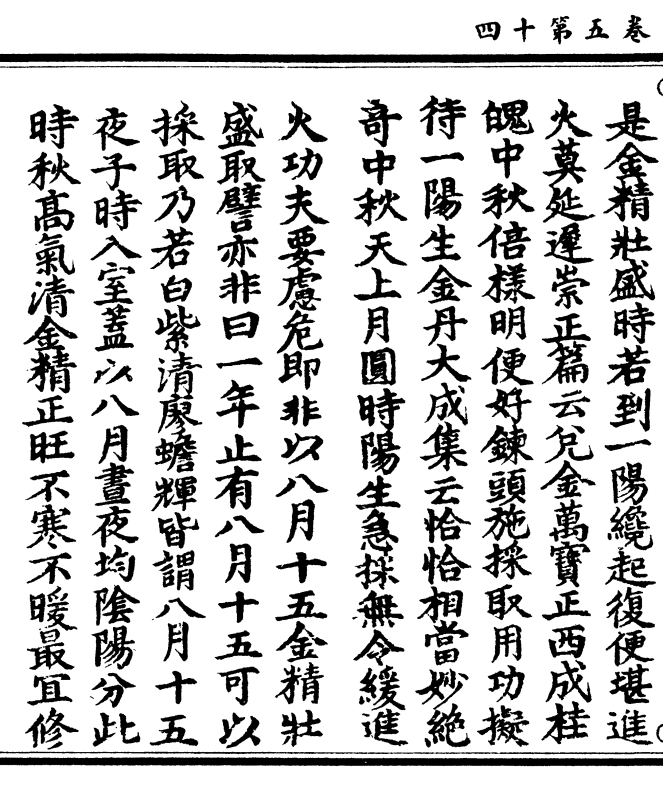 卷五第十四
是金精壯盛時若到一陽纔起復便堪進
火莫延遲崇正篇云兌金萬寶正西成桂
魄中秋倍樣明便好鍊頭施採取用功擬
待一陽生金丹大成集云恰恰相當妙絕
竒中秋天上月圓時陽生急採無令緩進
火功夫要慮危即非以八月十五金精壯
盛取譬亦非曰一年止有八月十五可以
採取乃若白紫清廖蟾輝皆謂八月十五
夜子時入室蓋以八月晝夜均陰陽分此
時秋髙氣清金精正旺不寒不暖最宜修